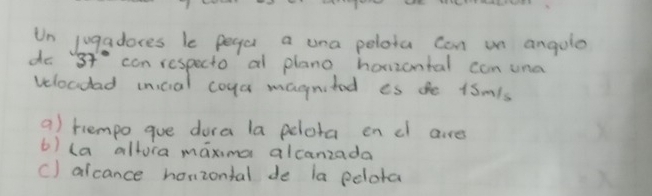 Un jugadores le pega a una pelota con un angulo
de 37° con respecto al plano horizontal con una
velocidad inicial coya magnitod es de 15m/s
a) tiempo que dura la pelota en el aire
b) La altura máxima alcanzada
c) alcance horizontal de la pelota